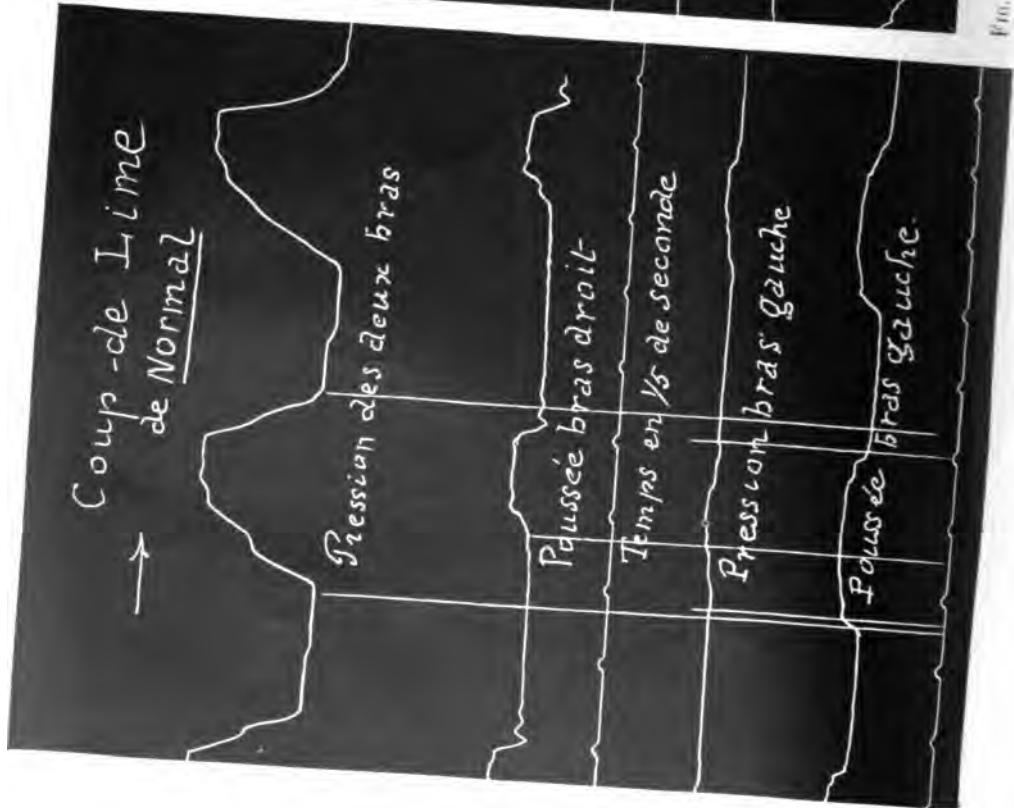 Coup-de Lime
de Normal
→
Pression des deux bras
Poussée bras droit
Temps en 1/5 de seconde
Pression bras gauche
Poussée bras gauche.
Fig.